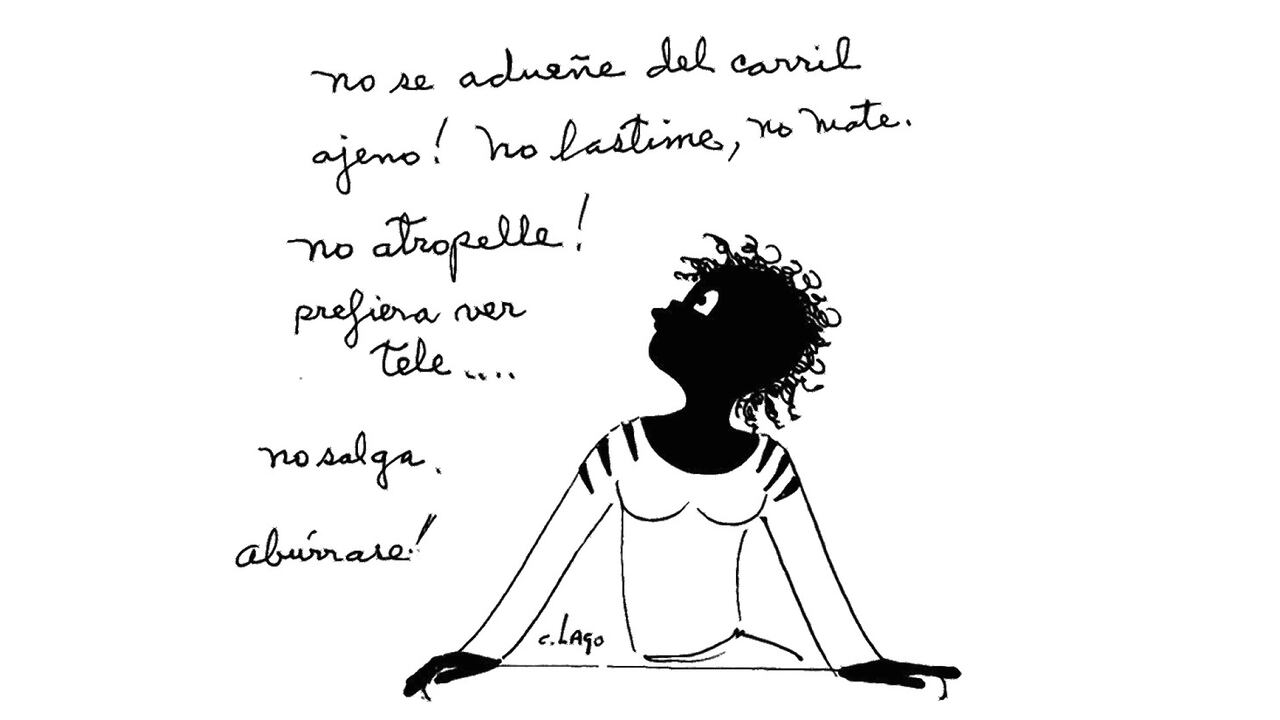 no se adueñe del carril
ajeno! No lastime, no mate.
no atropelle!
prefiera ver
tele....
no salga.
abúrrase!
c. LAgo